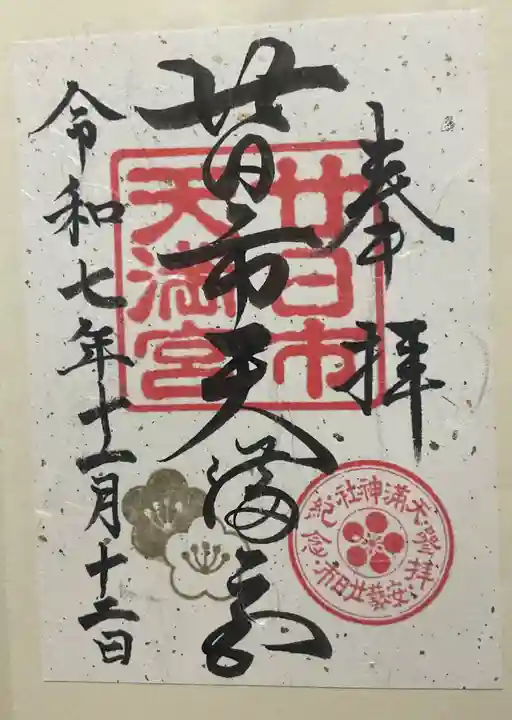 奉拝
廿日市天満宮
令和七年十一月十二日
廿日市
天満宮
天満神社
参拝
紀念
安藝廿日市